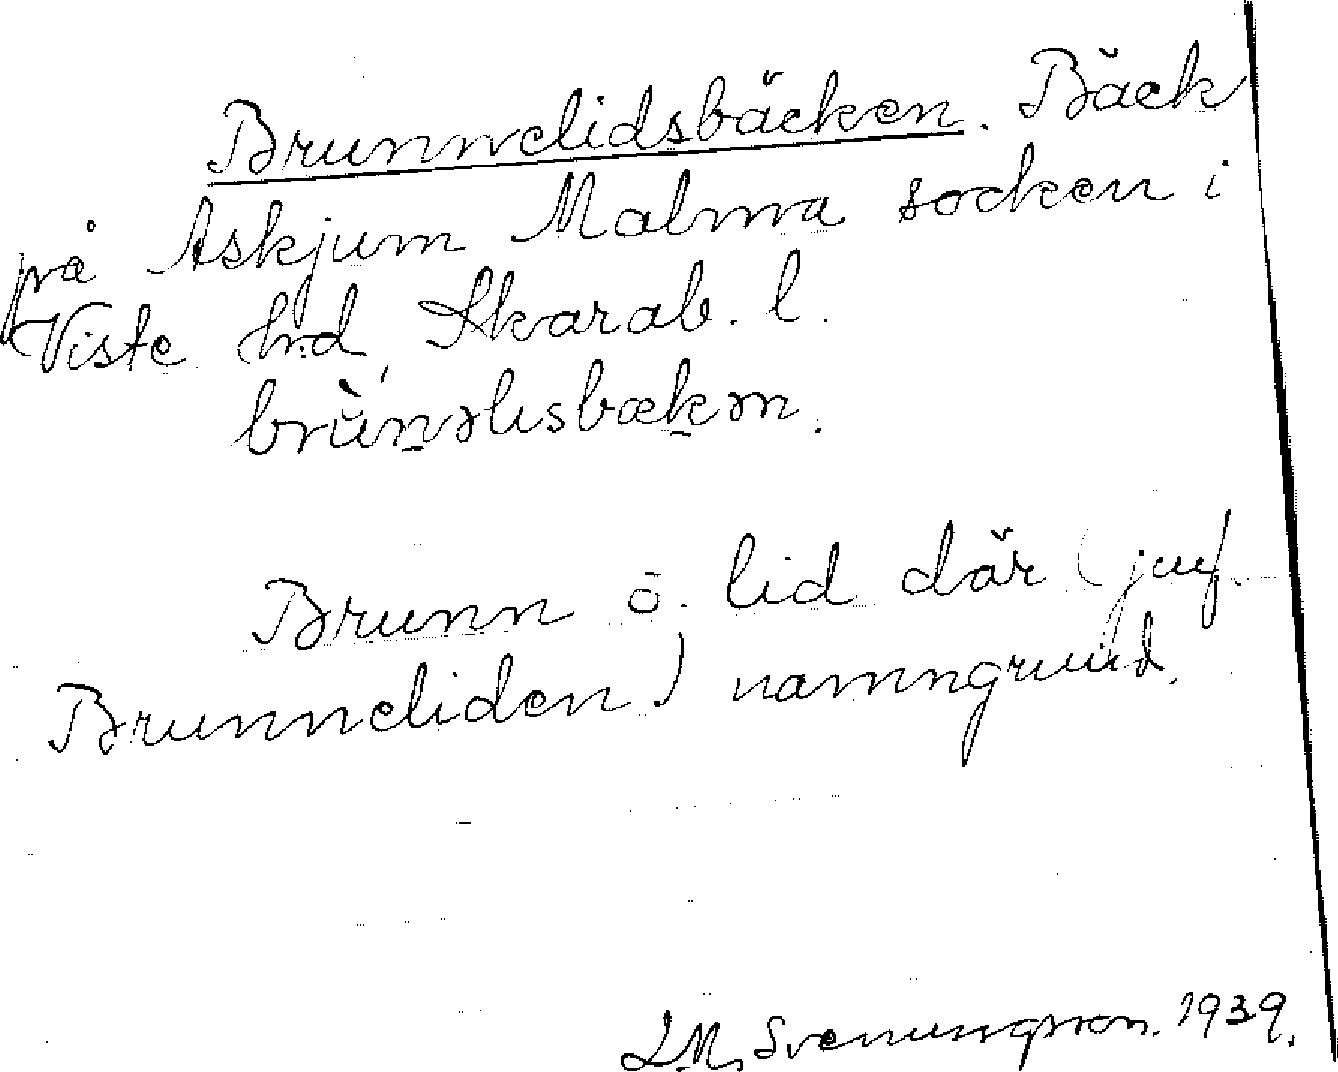 Brunnelidsbäcken. Bäck
på Askjum Malma socken i
Viste hd, Skarab. l.
brùnəlisbækən.
Brunn o. lid där (jmf.
Brunneliden) namngrund.
L.M. Svenungsson. 1939.